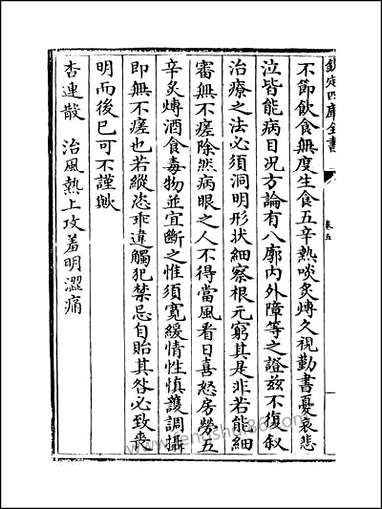 欽定四庫全書
卷五
不節飲食無度生食五辛熱啖炙煿久視勤書憂哀悲
泣皆能病目况方論有八廓内外障等之證兹不復叙
治療之法必須洞明形狀細察根元窮其是非若能細
審無不瘥除然病眼之人不得當風看日喜怒房勞五
辛炙煿酒食毒物並宜斷之惟須寛緩情性慎護調攝
即無不瘥也若縱恣乖違觸犯禁忌自貽其咎必致喪
明而後已可不謹歟
杏連散　治風熱上攻羞明澀痛